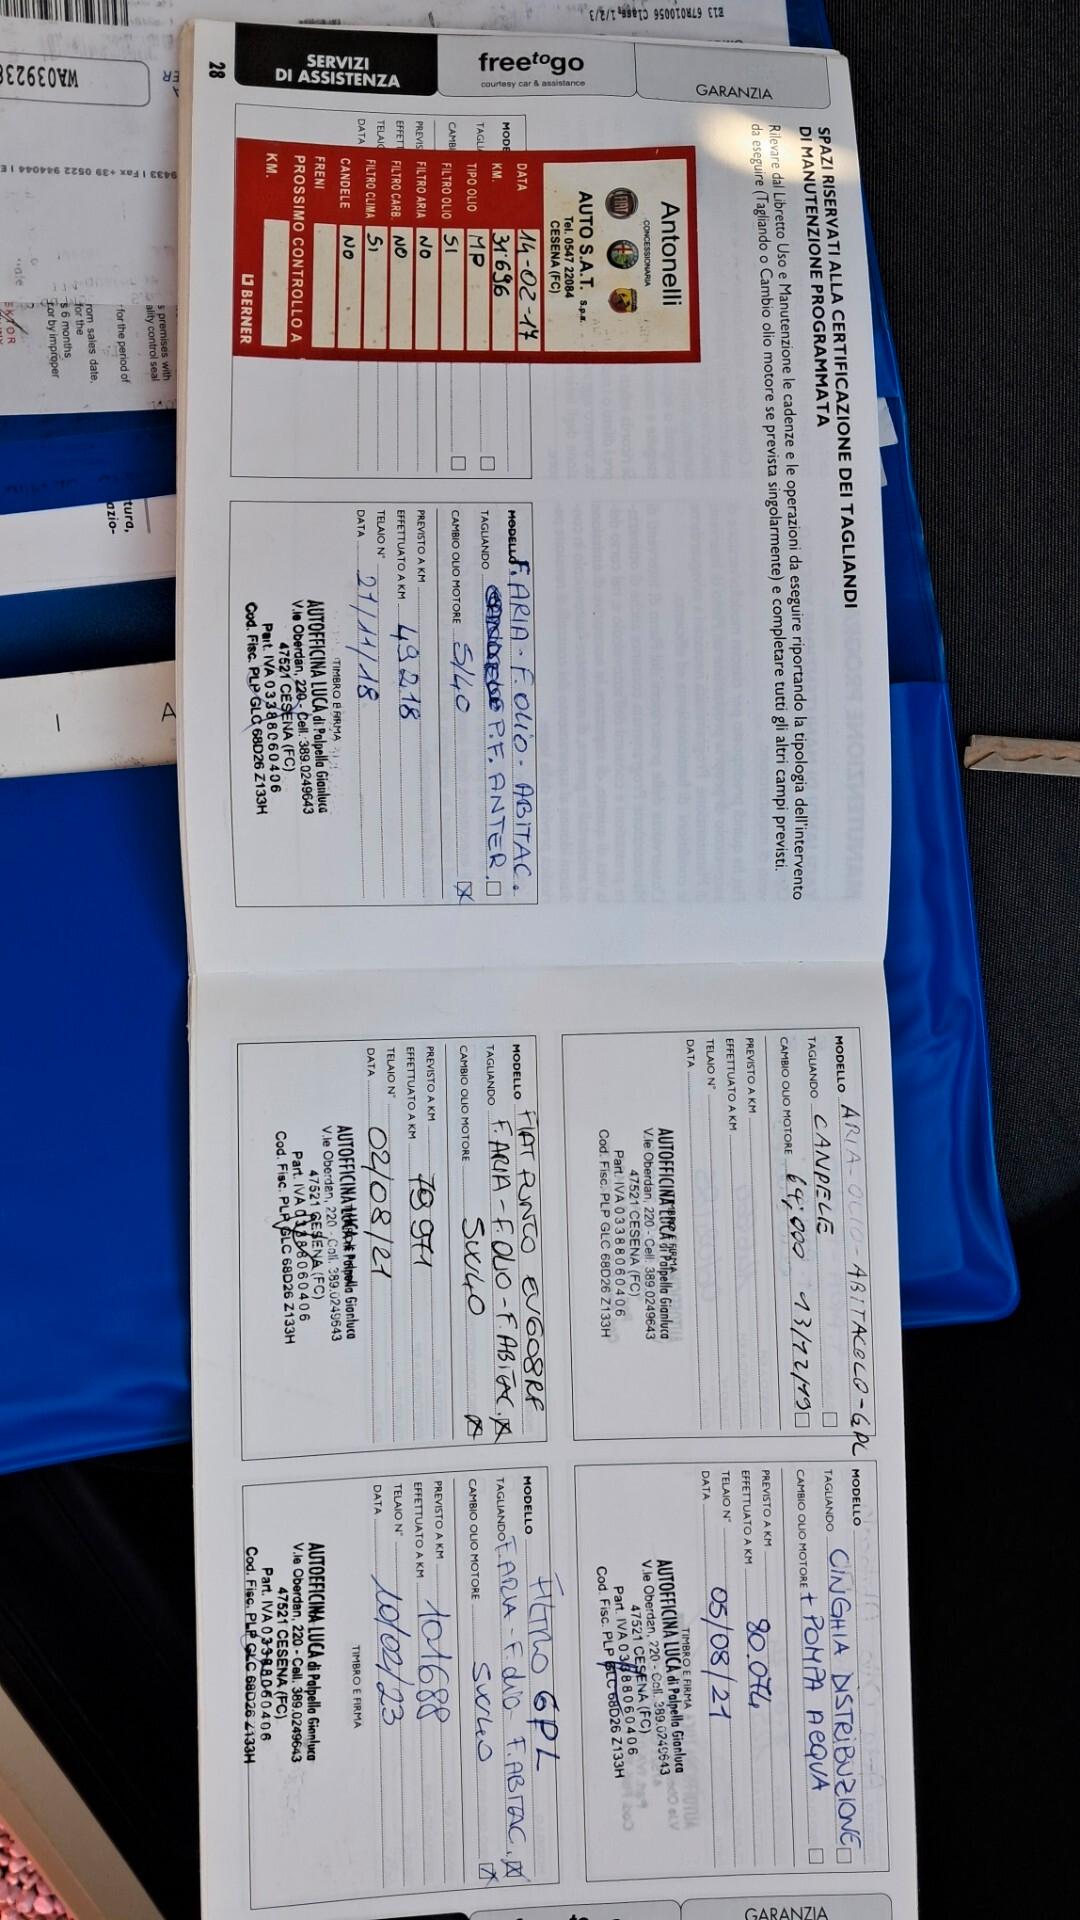 SERVIZI
DI ASSISTENZA
freetogo
courtesy car & assistance
GARANZIA
28
SPAZI RISERVATI ALLA CERTIFICAZIONE DEI TAGLIANDI
DI MANUTENZIONE PROGRAMMATA
Rilevare dal Libretto Uso e Manutenzione le cadenze e le operazioni da eseguire riportando la tipologia dell'intervento
da eseguire (Tagliando o Cambio olio motore se prevista singolarmente) e completare tutti gli altri campi previsti.
Antonelli
CONCESSIONARIA
FIAT
AUTO S.A.T. s.p.a.
Tel. 0547 22084
CESENA (FC)
DATA 14-02-17
KM. 31'696
TIPO OLIO MP
FILTRO OLIO SI
FILTRO ARIA NO
FILTRO CARB. NO
FILTRO CLIMA SI
CANDELE NO
FRENI
PROSSIMO CONTROLLO A
KM.
BERNER
MODE
TAGLI
CAMBI
PREVIS
EFFETT
TELAIO
DATA
MODELLO F. ARIA - F. OLIO - ABITAC.
TAGLIANDO P.F. ANTER.
CAMBIO OLIO MOTORE 5/40
PREVISTO A KM
EFFETTUATO A KM 49218
TELAIO N°
DATA 21/11/18
TIMBRO E FIRMA
AUTOFFICINA LUCA di Palpella Gianluca
V.le Oberdan, 220 - Cell. 389.0249643
47521 CESENA (FC)
Part. IVA 03388060406
Cod. Fisc. PLP GLC 68D26 Z133H
MODELLO ARIA - OLIO - ABITACOLO - GPL
TAGLIANDO CANDELE
CAMBIO OLIO MOTORE 64,000 13/12/19
PREVISTO A KM
EFFETTUATO A KM
TELAIO N°
DATA
TIMBRO E FIRMA
AUTOFFICINA LUCA di Palpella Gianluca
V.le Oberdan, 220 - Cell. 389.0249643
47521 CESENA (FC)
Part. IVA 03388060406
Cod. Fisc. PLP GLC 68D26 Z133H
MODELLO FIAT PUNTO EV608RF
TAGLIANDO F. ARIA - F. OLIO - F. ABITAC.
CAMBIO OLIO MOTORE 5W40
PREVISTO A KM
EFFETTUATO A KM 79971
TELAIO N°
DATA 02/08/21
AUTOFFICINA LUCA di Palpella Gianluca
V.le Oberdan, 220 - Cell. 389.0249643
47521 CESENA (FC)
Part. IVA 03388060406
Cod. Fisc. PLP GLC 68D26 Z133H
MODELLO
TAGLIANDO CINGHIA DISTRIBUZIONE
CAMBIO OLIO MOTORE + POMPA ACQUA
PREVISTO A KM
EFFETTUATO A KM 80.074
TELAIO N°
DATA 05/08/21
TIMBRO E FIRMA
AUTOFFICINA LUCA di Palpella Gianluca
V.le Oberdan, 220 - Cell. 389.0249643
47521 CESENA (FC)
Part. IVA 03388060406
Cod. Fisc. PLP GLC 68D26 Z133H
MODELLO FILTRO GPL
TAGLIANDO F. ARIA - F. OLIO F. ABITAC.
CAMBIO OLIO MOTORE 5W40
PREVISTO A KM
EFFETTUATO A KM 101688
TELAIO N°
DATA 10/02/23
TIMBRO E FIRMA
AUTOFFICINA LUCA di Palpella Gianluca
V.le Oberdan, 220 - Cell. 389.0249643
47521 CESENA (FC)
Part. IVA 03388060406
Cod. Fisc. PLP GLC 68D26 Z133H
GARANZIA
E13 67R010056 Class. 1/2/3
9433 | Fax +39 0522 944044 | E
s premises with
ality control seal
for the period of
rom sales date,
for the
s 6 months
or by improper
tura,
azio-
A